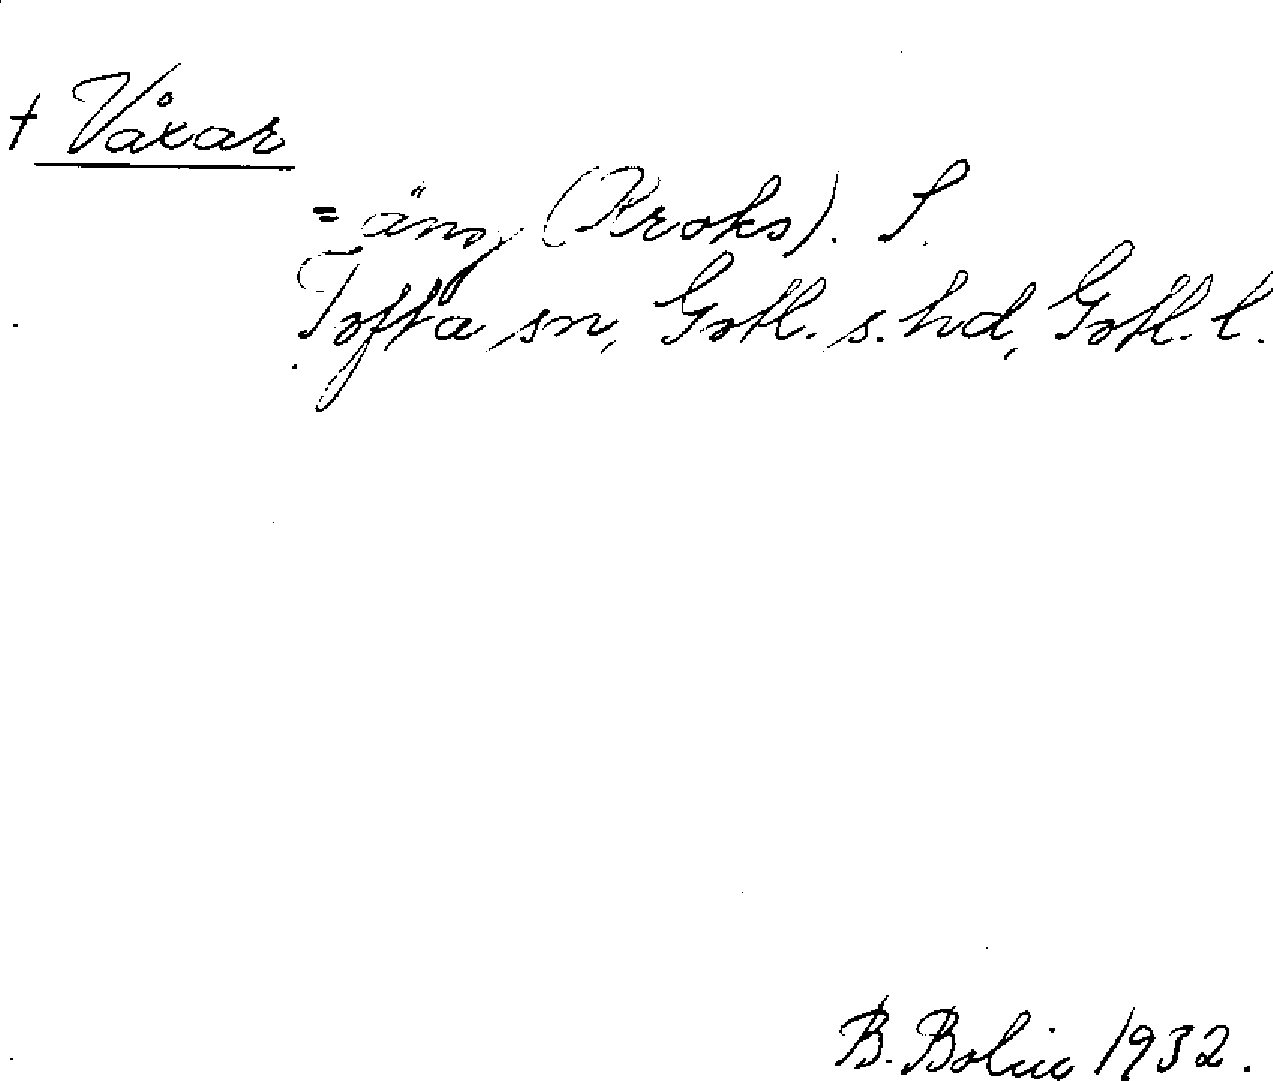 + Våxar
= äng (Kroks). S.
Tofta sn, Gotl. s. hd, Gotl. l.
B. Bolin 1932.